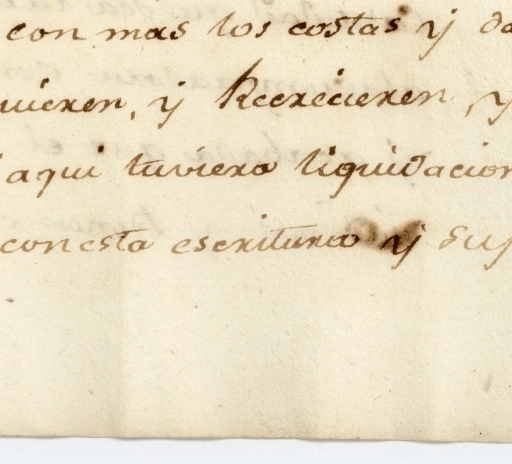 con mas los costas y da
uieren, y Recrecieren, y
aqui tuviera liquidacion
con esta escritura y suj